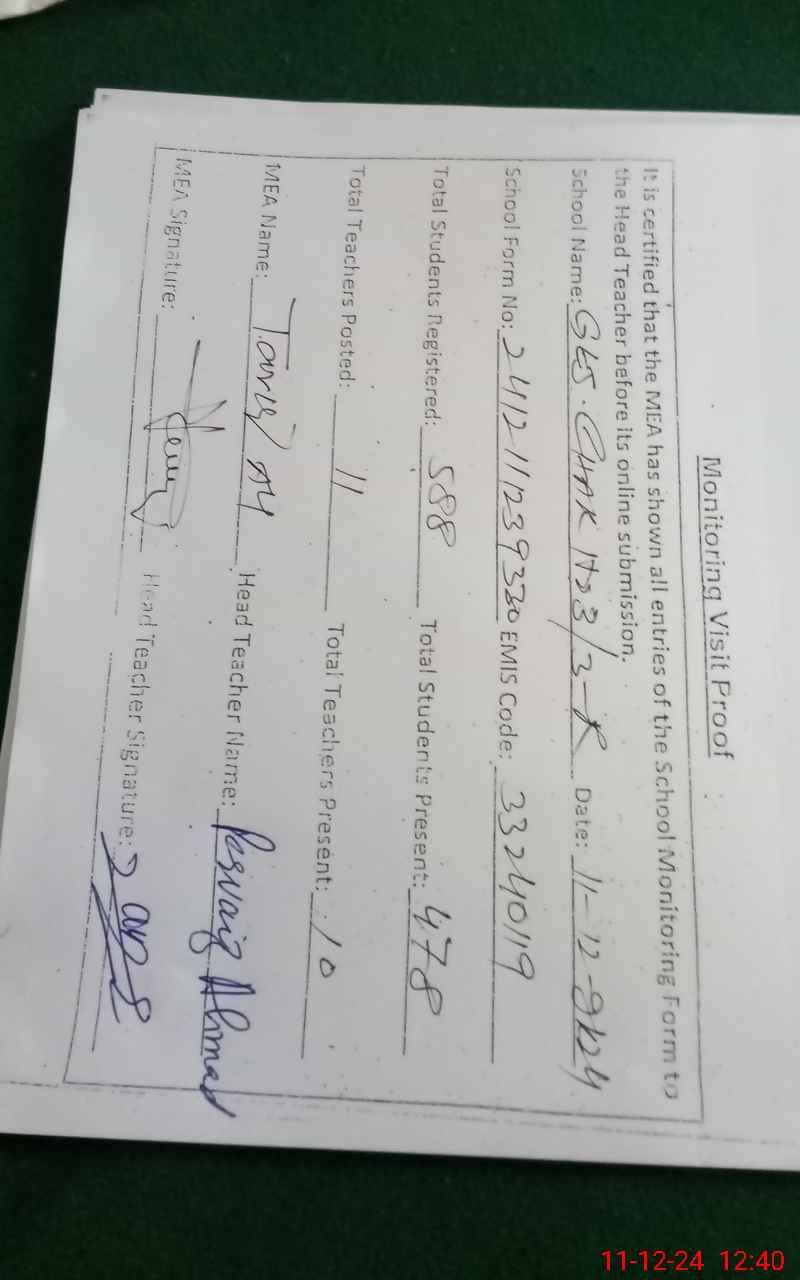 Monitoring Visit Proof
It is certified that the MEA has shown all entries of the School Monitoring Form to
the Head Teacher before its online submission.
School Name: GES. CHAK 3/3-R Date: 11-12-2024
School Form No: 2412111239330 EMIS Code: 33240119
Total Students Registered: 588 Total Students Present: 478
Total Teachers Posted: 11 Total Teachers Present: 10
MEA Name: Head Teacher Name: Parvaiz Ahmad
MEA Signature: Head Teacher Signature:
11-12-24 12:40